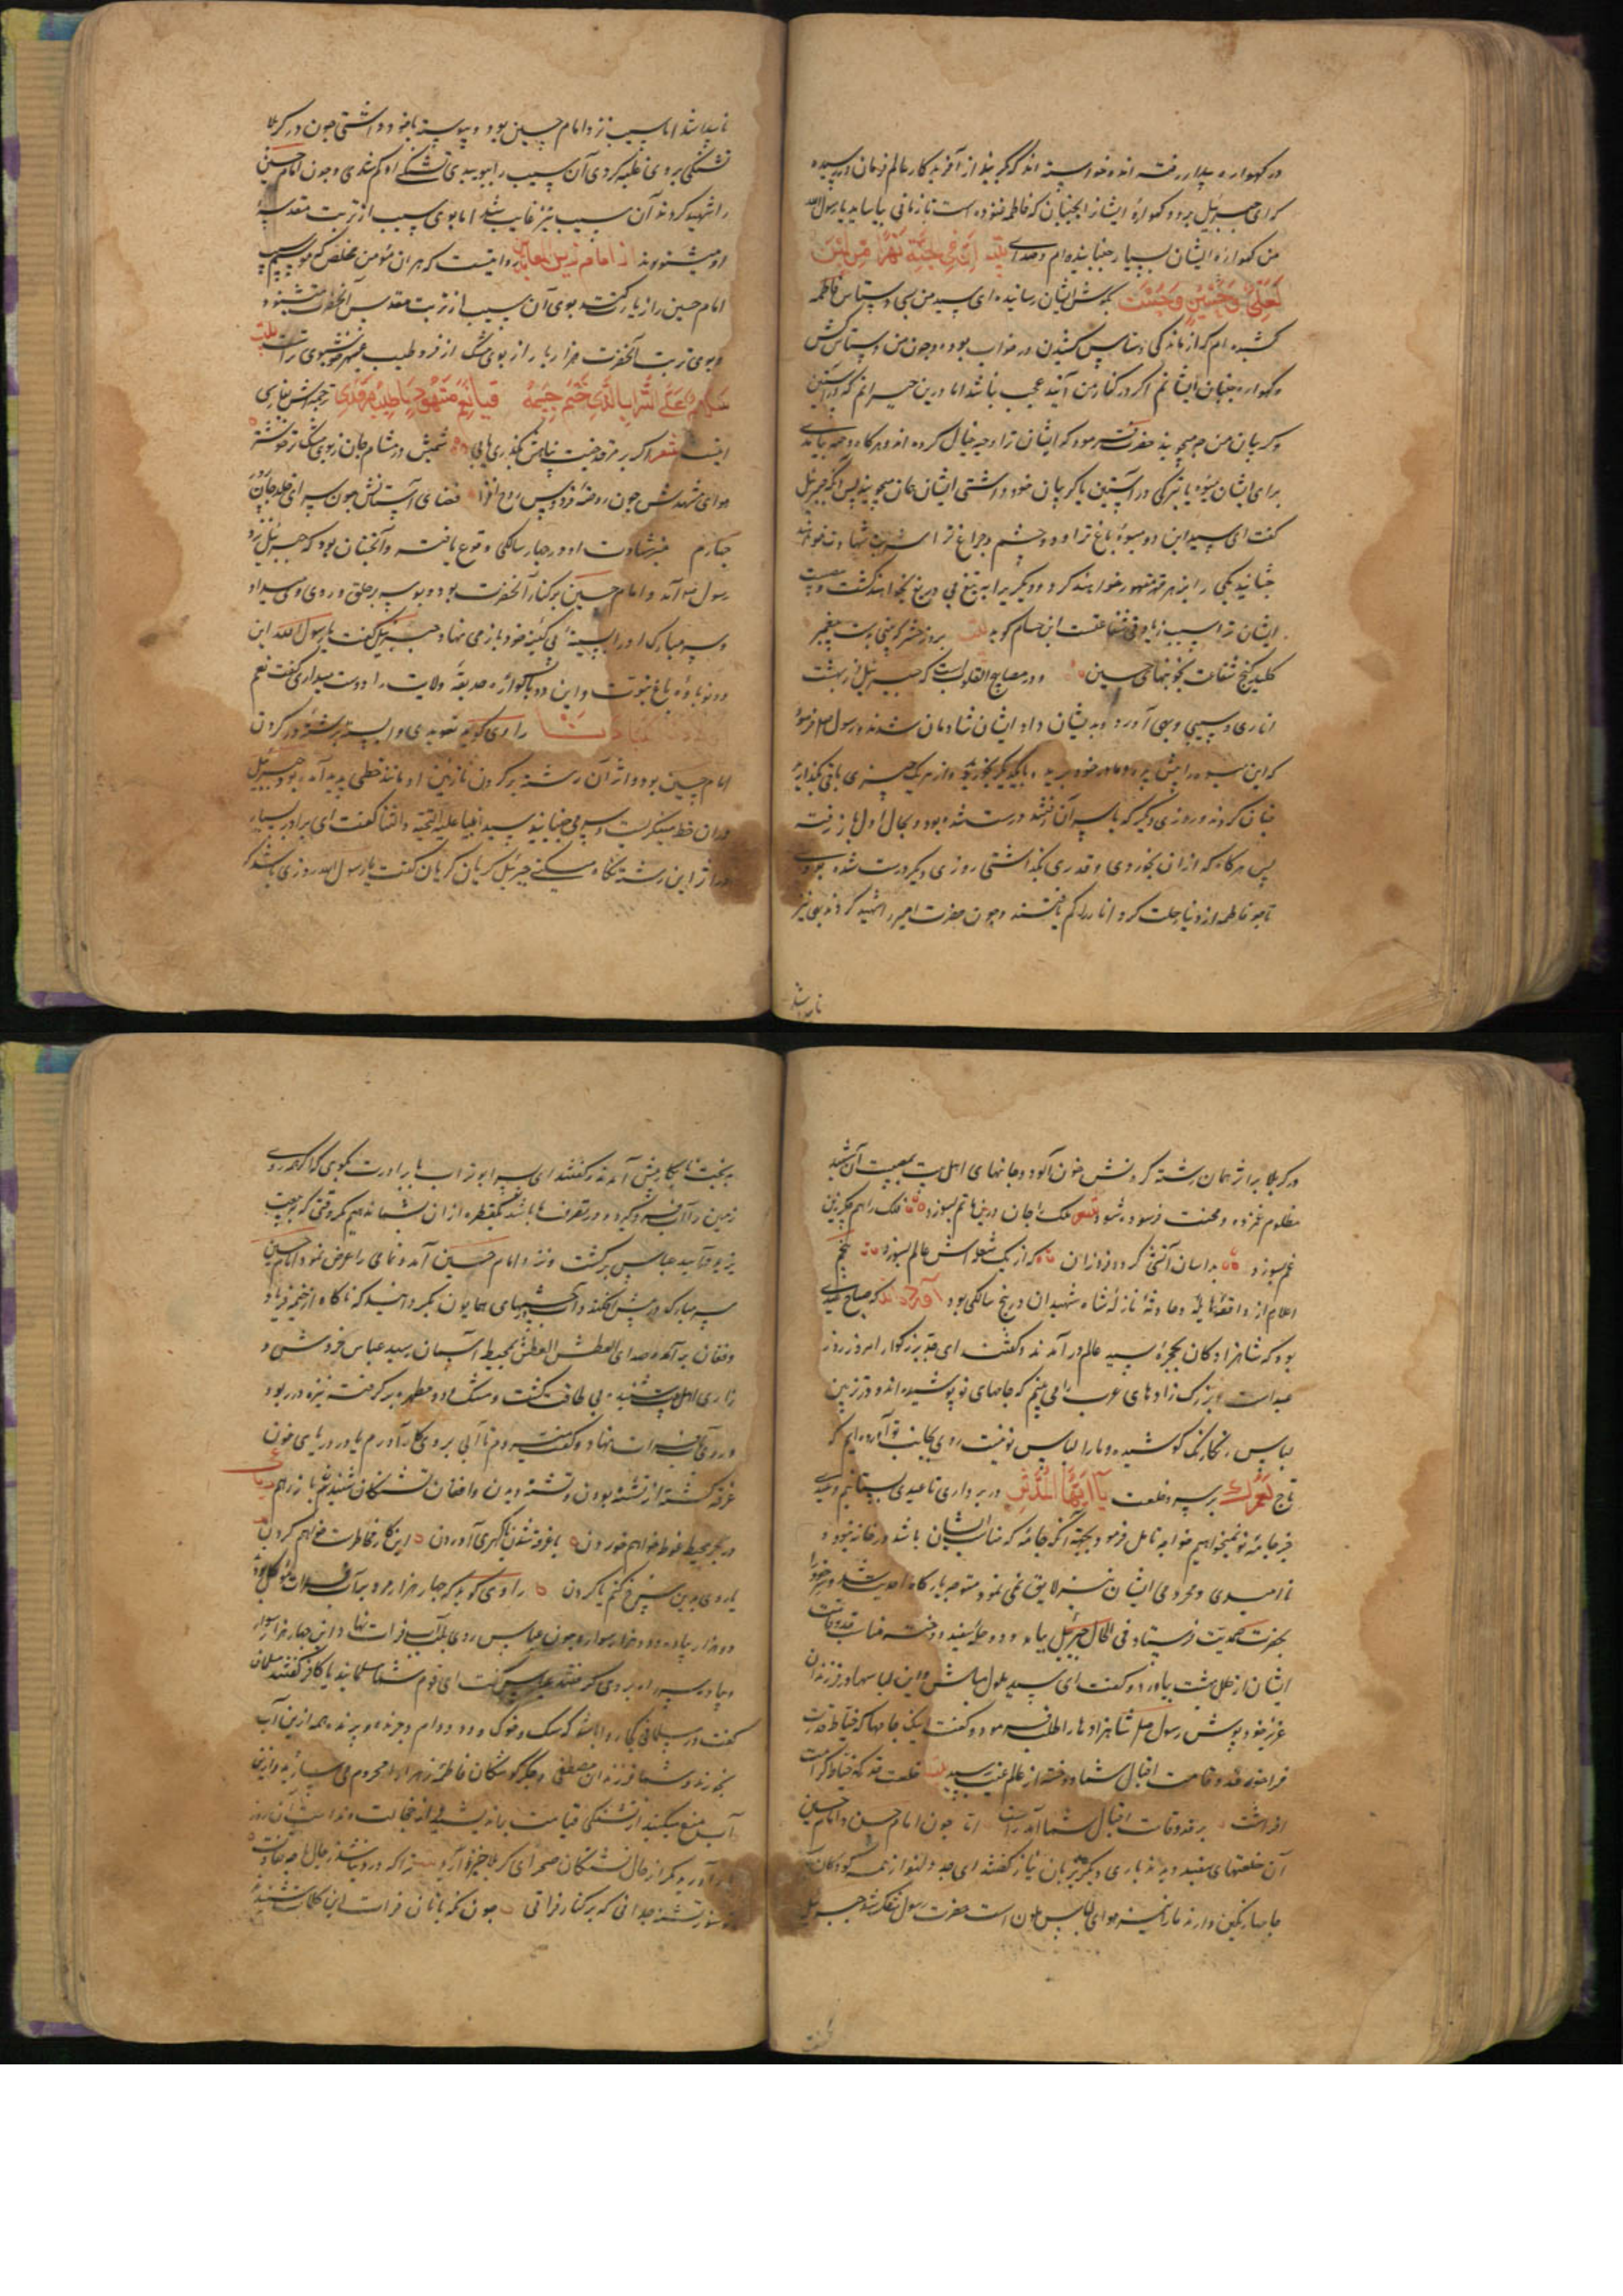 در کهواره بیدار رفته اند و خواسته اند که بگریند از آفریدکار عالم فرمان در رسیده
که ای جبرئیل برو و کهوارهٔ ایشانرا بجنبان که فاطمه غنوده است تا زمانی بیاساید یا رسول الله
من کهوارهٔ ایشان بسیار جنبانیده ام و صدای بیت ان فی الجنة نهرا من لبن
لعلی و حسین و حسن بکوش ایشان رسانیده ای سید من بسی دستاس فاطمه
کشیده ام که از ماندکی دستاس کشیدن در خواب بوده و چون من دستاس کش
و کهواره جنبان ایشانم اکر در کنار من آیند عجب نباشد اما درین حیرانم که در آستین
و کریبان من چه میجویند حضرت فرمود که ایشان ترا دحیه خیال کرده اند و هرکاه دحیه بیامدی
برای ایشان میوه یا تبرکی در آستین یا کریبان خود داشتی ایشان همان میجویند پس آنکه جبرئیل
کفت ای سید این دو میوهٔ باغ ترا و دو چشم و چراغ ترا شربت شهادت خواهند
چشانید یکی را بزهر قهر مقهور خواهند کرد و دیکریرا به تیغ بی دریغ بخواهند کشت و مصیبت
ایشان ترا سبب زیادتی شفاعتست ابن حسام کوید بیت بروز حشر که بینی بدست پیغمبر
کلید کنج شفاعت بخونبهای حسین و در مصابیح القلوب است که جبرئیل از بهشت
اناری و سیبی و بهی آورد و بدیشان داد ایشان شادمان شدند و رسول صلعم فرمود
که این میوه را پیش پدر و مادر خود برید و با یکدیکر بخورید و از هر یک چیزی باقی بکذارید
چنان کردند و روزی دیکر که باسر آن رفتند درست شده بود و بحال اول باز رفته
پس هرکاه که ازان بخوردی و قدری بکذاشتی روزی دیکر درست شده بودی
تا چو فاطمه از دنیا رحلت کرد انار را کم یافتند و چون حضرت امیر را شهید کردند بهی نیز
ناپیدا شد
ناپیدا شد اما سیب نزد امام حسین بود و پیوسته با خود داشتی چون در کربلا
تشنکی بروی غلبه کردی آن سیب را ببوییدی تشنکی او کم شدی و چون امام حسین
را شهید کردند آن سیب نیز غایب شد اما بوی سیب از تربت مقدسهٔ
او میشنوند از امام زین العابدین روایتست که هر آن مؤمن مخلص که موسم
امام حسین را زیارت کند بوی آن سیب از تربت مقدس آنحضرت بشنود
و بوی تربت آنحضرت هزار بار از بوی مشک ازفر و طیب عنبر خوشبوی تر است بیت
سلام علی التراب الذی ضم جسمه فیا نعم مشهود یا طیب مرقدی ترجمه اش بفارسی
اینست شعر اکر بر مرقد جنت پناهش بکذری یابی شمیمش در مشام جان ز بوی مشک تر خوشتر
هوای مشهدش چون روضهٔ فردوس روح افزا فضای آستانش چون سرای خلد جان پرور
چهارم خبر شهادت او در چهار سالکی وقوع یافته و آنچنان بود که جبرئیل نزد
رسول خدا آمد و امام حسین بر کنار آنحضرت بود و بوسه بر حلق و روی وی میداد
و سر مبارک او را بسینهٔ بی کینهٔ خود باز می نهاد جبرئیل کفت یا رسول الله این
دو نوباوهٔ باغ نبوت و این دو باکورهٔ حدیقهٔ ولایت را دوست میداری کفت نعم
راوی کوید تعویذی بود بسته بر رشته در کردن
امام حسین بود و اثر آن رشته بر کردن نازنین او مانند خطی پدید آمده بود جبرئیل
دران خط مینکریست و سر می جنبانید سید انبیا علیه التحیه و الثنا کفت ای برادر بسیار
در اثر این رشته نکاه میکنی جبرئیل کریان کریان کفت یا رسول الله روزی باشد که
در کربلا بر اثر همان رشته کردنش خون آلود و جانهای اهل بیت بمصیبت آن شهید
مظلوم غمزده و محنت فرسود شود ملک را جان درین ماتم بسوزد فلک را هم جکر زین
غم بسوزد بدانسان آتشی کردد فروزان که از یک شعله اش عالم بسوزد پنجم
اعلام از واقعهٔ هایله و حادثهٔ نازلهٔ شاه شهیدان در پنج سالکی بود آورده اند که صباح عیدی
بود که شاهزادکان بحجرهٔ سید عالم در آمدند و کفتند ای جد بزرکوار امروز روز
عید است و بزرک زادهای عرب را می بینم که جامهای نو پوشیده اند و در تزیین
لباس رنکارنک کوشیده و ما را لباس نو نیست روی بجانب تو آورده ایم که
تاج لعمرک بر سر و خلعت یا ایها المدثر در بر داری تا عیدی بستانیم و عیدی
جز جامهٔ نو نمیخواهیم خواجه تامل فرمود بجهة آنکه جامهٔ که مناسب ایشان باشد در خانه نبود و
ناامیدی و محرومی ایشان نیز لایق نمی نمود متوجه بارکاه احدیت شد
بحضرت صمدیت فرستاد فی الحال جبرئیل بیامد و دو حلهٔ سفید دوخته مناسب قد و قامت
ایشان از حلل بهشت بیاورد و کفت ای سید ملول مباش و این لباسها در فرزندان
عزیز خود پوش رسول صلعم شاهزادها را طلب فرمود و کفت اینک جامها که خیاط قدرت
فراخور قد و قامت اقبال شما دوخته از عالم غیب رسید بیت خلعت قد که خیاط کرامت
افراشت بر قد و قامت اقبال شما آمد راست اما چون امام حسن و امام حسین
آن خلعتهای سفید دیدند باری دیکر بزبان نیاز کفتند ای جد دلنواز همه کودکان عرب
جامهاء رنکین دارند ما را نیز هوای لباس ملون است حضرت رسول متفکر شد جبرئیل
کفت
بدبخت نابکار پیش آمدند و کفتند ای پسر ابوتراب با برادرت بکوی که اکر همه روی
زمین را آب فرو کیرد و در تصرف ما باشد یکقطره ازان شما ندهیم مکر وقتی که ببیعت
یزید در آیید عباس برکشت و نزد امام حسین آمد و تمامی را عرض نمود امام حسین
سر مبارک در پیش افکند و آب چشمهای همایون بکردانید که ناکاه از خیمه فریاد
و فغان برآمد و صدای العطش العطش بمحیط آسمان رسید عباس خروش و
زاری اهل بیت شنید بی طاقت کشت و مشک و دو مطهره بر کرفت نیزه در ربود
و روی بآب فرات نهاد و کفت میروم تا آبی بروی کار آورم یا در دریای خون
غرقه کشته از تشنه بودن و تشنه دیدن و افغان تشنکان شنیدن باز رهم رباعی
در بحر محیط غوطه خواهم خوردن یا غرقه شدن یا کهری آوردن این کار مخاطره است خواهم کردن
یا روی بدین سرخ کنم یا کردن راوی کوید که چهار هزار مرد بر آب فرات موکل بود
دو هزار پیاده و دو هزار سواره چون عباس روی بلب آب فرات نهاد این چهار هزار سوار
و پیاده سر راه بروی کرفتند عباس کفت ای قوم شما مسلمانید یا کافر کفتند مسلمان
کفت در مسلمانی کجا روا باشد که سک و خوک و دد و دام و چرنده و پرنده همه ازین آب
بخورند و شما فرزندان مصطفی و جکر کوشکان فاطمهٔ زهرا را محروم می سازید و ازین
آب منع میکنید از تشنکی قیامت یاد
آورید مکر از حال تشنکان صحرای کربلا خبر ندارید
تشنه چه دانی که بر کنار فراتی چون نکهبانان فرات این کلمات شنیدند